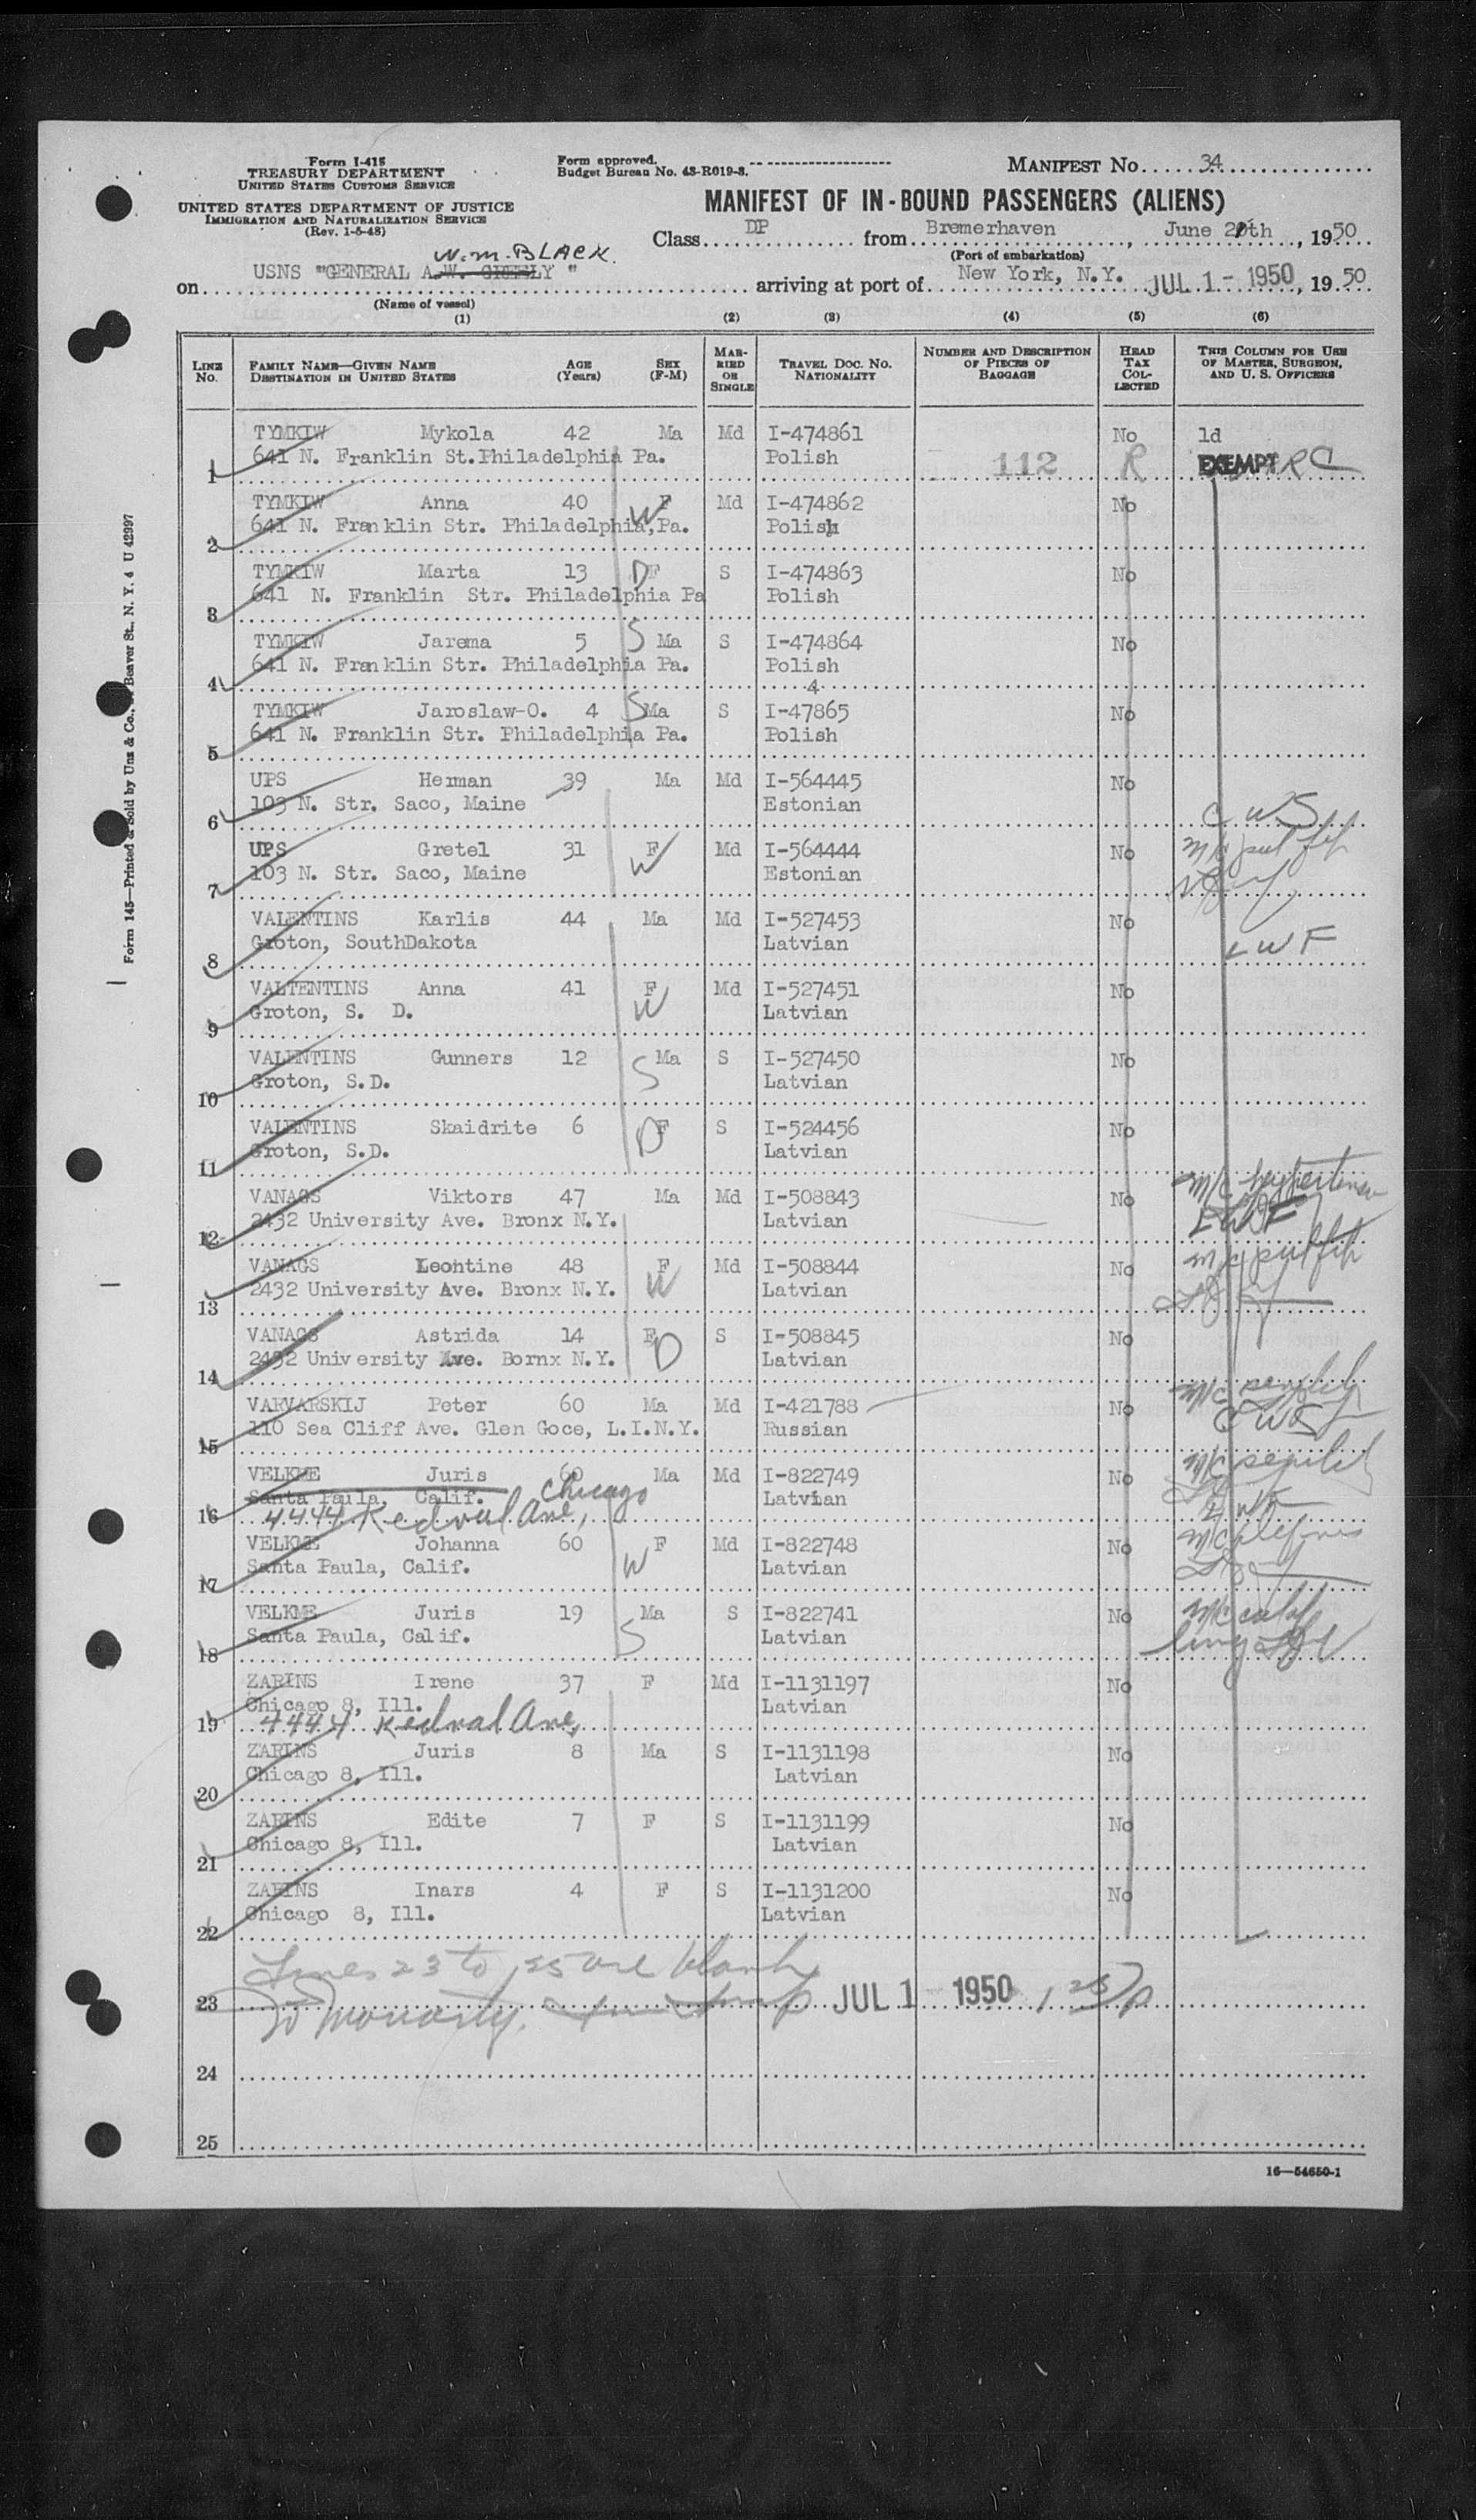 Form I-415
TREASURY DEPARTMENT
UNITED STATES CUSTOMS SERVICE
UNITED STATES DEPARTMENT OF JUSTICE
IMMIGRATION AND NATURALIZATION SERVICE
(Rev. 1-5-48)
Form approved.
Budget Bureau No. 43-R019-3.
MANIFEST No. 34
MANIFEST OF IN-BOUND PASSENGERS (ALIENS)
Class DP from Bremerhaven, June 20th, 1950
(Port of embarkation)
W.M. BLACK
on USNS "GENERAL A.W. GREELY " arriving at port of New York, N.Y. JUL 1 - 1950, 1950
(Name of vessel)
(1) (2) (3) (4) (5) (6)
LINE No. FAMILY NAME—GIVEN NAME DESTINATION IN UNITED STATES AGE (Years) SEX (F-M) MARRIED OR SINGLE TRAVEL DOC. NO. NATIONALITY NUMBER AND DESCRIPTION OF PIECES OF BAGGAGE HEAD TAX COLLECTED THIS COLUMN FOR USE OF MASTER, SURGEON, AND U. S. OFFICERS
TYMKIW Mykola 42 Ma Md I-474861 No ld
1 641 N. Franklin St. Philadelphia Pa. Polish 112 R EXEMPT RC
TYMKIW Anna 40 F W Md I-474862 No
2 641 N. Franklin Str. Philadelphia, Pa. Polish
TYMKIW Marta 13 D F S I-474863 No
3 641 N. Franklin Str. Philadelphia Pa Polish
TYMKIW Jarema 5 S Ma S I-474864 No
4 641 N. Franklin Str. Philadelphia Pa. Polish
4
TYMKIW Jaroslaw-O. 4 S Ma S I-47865 No
5 641 N. Franklin Str. Philadelphia Pa. Polish
UPS Herman 39 Ma Md I-564445 No
6 103 N. Str. Saco, Maine Estonian CWS
UPS Gretel 31 F W Md I-564444 No M/C
7 103 N. Str. Saco, Maine Estonian
VALENTINS Karlis 44 Ma Md I-527453 No
8 Groton, SouthDakota Latvian LWF
VALTENTINS Anna 41 F W Md I-527451 No
9 Groton, S. D. Latvian
VALENTINS Gunners 12 Ma S S I-527450 No
10 Groton, S.D. Latvian
VALENTINS Skaidrite 6 D F S I-524456 No
11 Groton, S.D. Latvian
VANAGS Viktors 47 Ma Md I-508843 No M/C
12 2432 University Ave. Bronx N.Y. Latvian LWF
VANAGS Leontine 48 F W Md I-508844 No M/C
13 2432 University Ave. Bronx N.Y. Latvian
VANAGS Astrida 14 F D S I-508845 No
14 2432 University Ave. Bornx N.Y. Latvian
VARVARSKIJ Peter 60 Ma Md I-421788 No M/C senility
15 110 Sea Cliff Ave. Glen Goce, L.I.N.Y. Russian CWS
VELKME Juris 60 Ma Md I-822749 No M/C senility
Santa Paula, Calif. Chicago Latvian
16 4444 Kedval Ave,
VELKME Johanna 60 F W Md I-822748 No M/C
17 Santa Paula, Calif. Latvian
VELKME Juris 19 Ma S S I-822741 No M/C
18 Santa Paula, Calif. Latvian
ZARINS Irene 37 F Md I-1131197 No
Chicago 8, Ill. Latvian
19 4444 Kedval Ave,
ZARINS Juris 8 Ma S I-1131198 No
20 Chicago 8, Ill. Latvian
ZARINS Edite 7 F S I-1131199 No
21 Chicago 8, Ill. Latvian
ZARINS Inars 4 F S I-1131200 No
22 Chicago 8, Ill. Latvian
Lines 23 to 25 are blank
23 JUL 1 1950
24
25
16—54650-1
Form 145—Printed & Sold by Unz & Co., Beaver St., N. Y. 4 U 42997